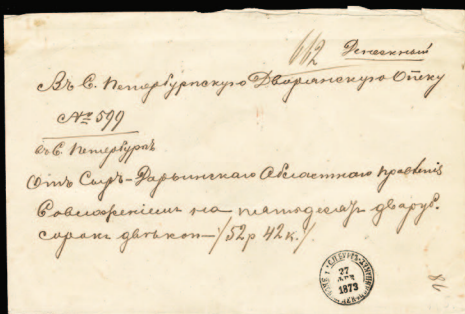 662 Денежный
Въ С. Петербургскую Дворянскую Опеку
№ 599
въ С. Петербургъ
Отъ Сыръ-Дарьинскаго Областнаго Правленія
Совложеніемъ на пятьдесятъ два руб.
сорокъ двѣ коп — /52 р 42 к./
27
1873